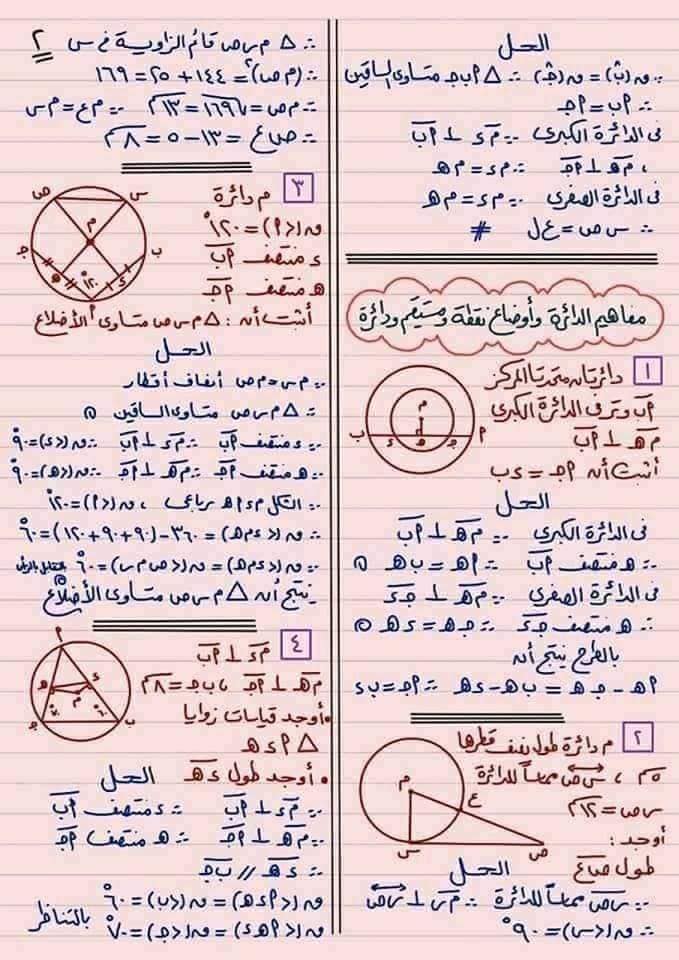 الحل
∵ ق(ب̂) = ق(ج̂) ∴ △ أ ب ج متساوى الساقين
∴ أب = أج
فى الدائرة الكبرى ∵ م س ⊥ أب
، م هـ ⊥ أج ∴ م ء = م هـ
فى الدائرة الصغرى ∵ م ء = م هـ
∴ س ص = ع ل #
مفاهيم الدائرة وأوضاع نقطة ومستقيم ودائرة
١ دائرتان متحدتا المركز
أب وتر فى الدائرة الكبرى
م هـ ⊥ أب
أثبت أن أج = ء ب
م
أ ج هـ ء ب
الحل
فى الدائرة الكبرى ∵ م هـ ⊥ أب
∴ هـ منتصف أب ∴ أهـ = ب هـ ①
فى الدائرة الصغرى ∵ م هـ ⊥ ج ء
∴ هـ منتصف ج ء ∴ ج هـ = ء هـ ②
بالطرح ينتج أن
أهـ - ج هـ = ب هـ - ء هـ ∴ أج = ب ء
٢ م دائرة طول نصف قطرها
٥سم ، س ص مماساً للدائرة
س ص = ١٢سم
أوجد :
طول ص ع
م
ع
س ص
الحل
∵ س ص مماساً للدائرة ∴ م س ⊥ س ص
∴ ق(∠س) = ٩٠°
٢
∴ △ م س ص قائم الزاوية فى س
∴ (م ص)٢ = ١٤٤ + ٢٥ = ١٦٩
∴ م ص = √١٦٩ = ١٣سم ∵ م ع = م س
∴ ص ع = ١٣ - ٥ = ٨سم
٣ م دائرة
ق(∠أ) = ١٢٠°
ء منتصف أب
هـ منتصف أج
أثبت أن : △ م س ص متساوى الأضلاع
ص س
م
ج ب
هـ ١٢٠° ء
أ
الحل
∵ م س = م ص أنصاف أقطار
∴ △ م س ص متساوى الساقين ①
∵ ء منتصف أب ∴ م ء ⊥ أب ∴ ق(∠ء) = ٩٠°
∵ هـ منتصف أج ∴ م هـ ⊥ أج ∴ ق(∠هـ) = ٩٠°
∵ الشكل م ء أ هـ رباعى ، ق(∠أ) = ١٢٠°
∴ ق(∠ء م هـ) = ٣٦٠ - (٩٠ + ٩٠ + ١٢٠) = ٦٠°
∵ ق(∠ء م هـ) = ق(∠ص م س) = ٦٠° بالتقابل بالرأس ②
ينتج أن △ م س ص متساوى الأضلاع
٤ م ء ⊥ أب
م هـ ⊥ أج ، ب ج = ٨سم
• أوجد قياسات زوايا
△ أ ء هـ
• أوجد طول ء هـ
أ
هـ ء
م
ج ٧٠° ٦٠° ب
الحل
∵ م ء ⊥ أب ∴ ء منتصف أب
∵ م هـ ⊥ أج ∴ هـ منتصف أج
∴ ء هـ // ب ج
∴ ق(∠أ ء هـ) = ق(∠ب) = ٦٠°
∴ ق(∠أ هـ ء) = ق(∠ج) = ٧٠° بالتناظر